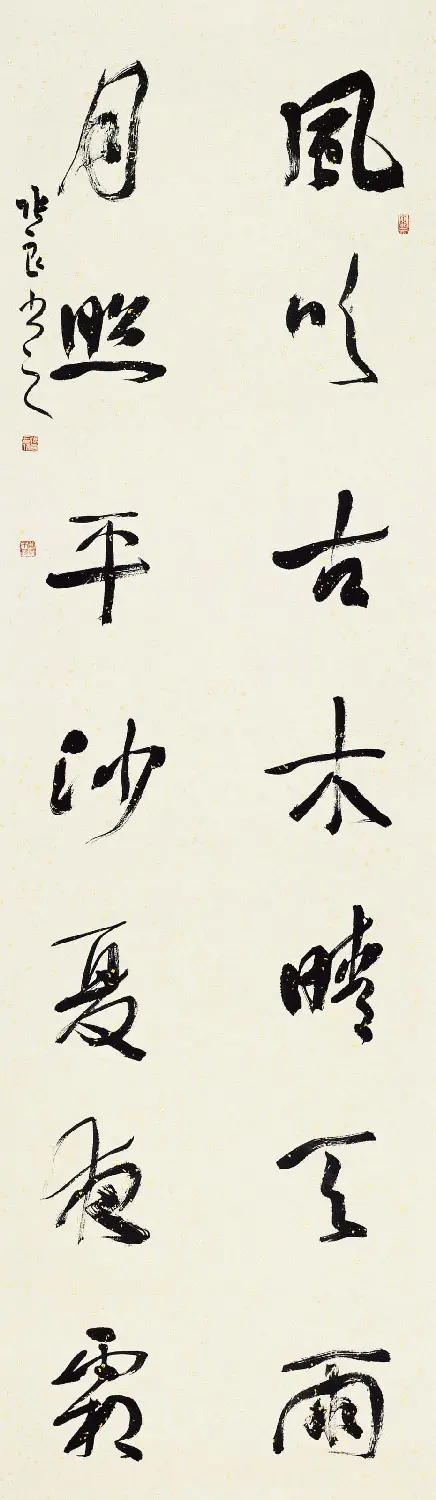 風吹古木晴天雨
月照平沙夏夜霜
良书之